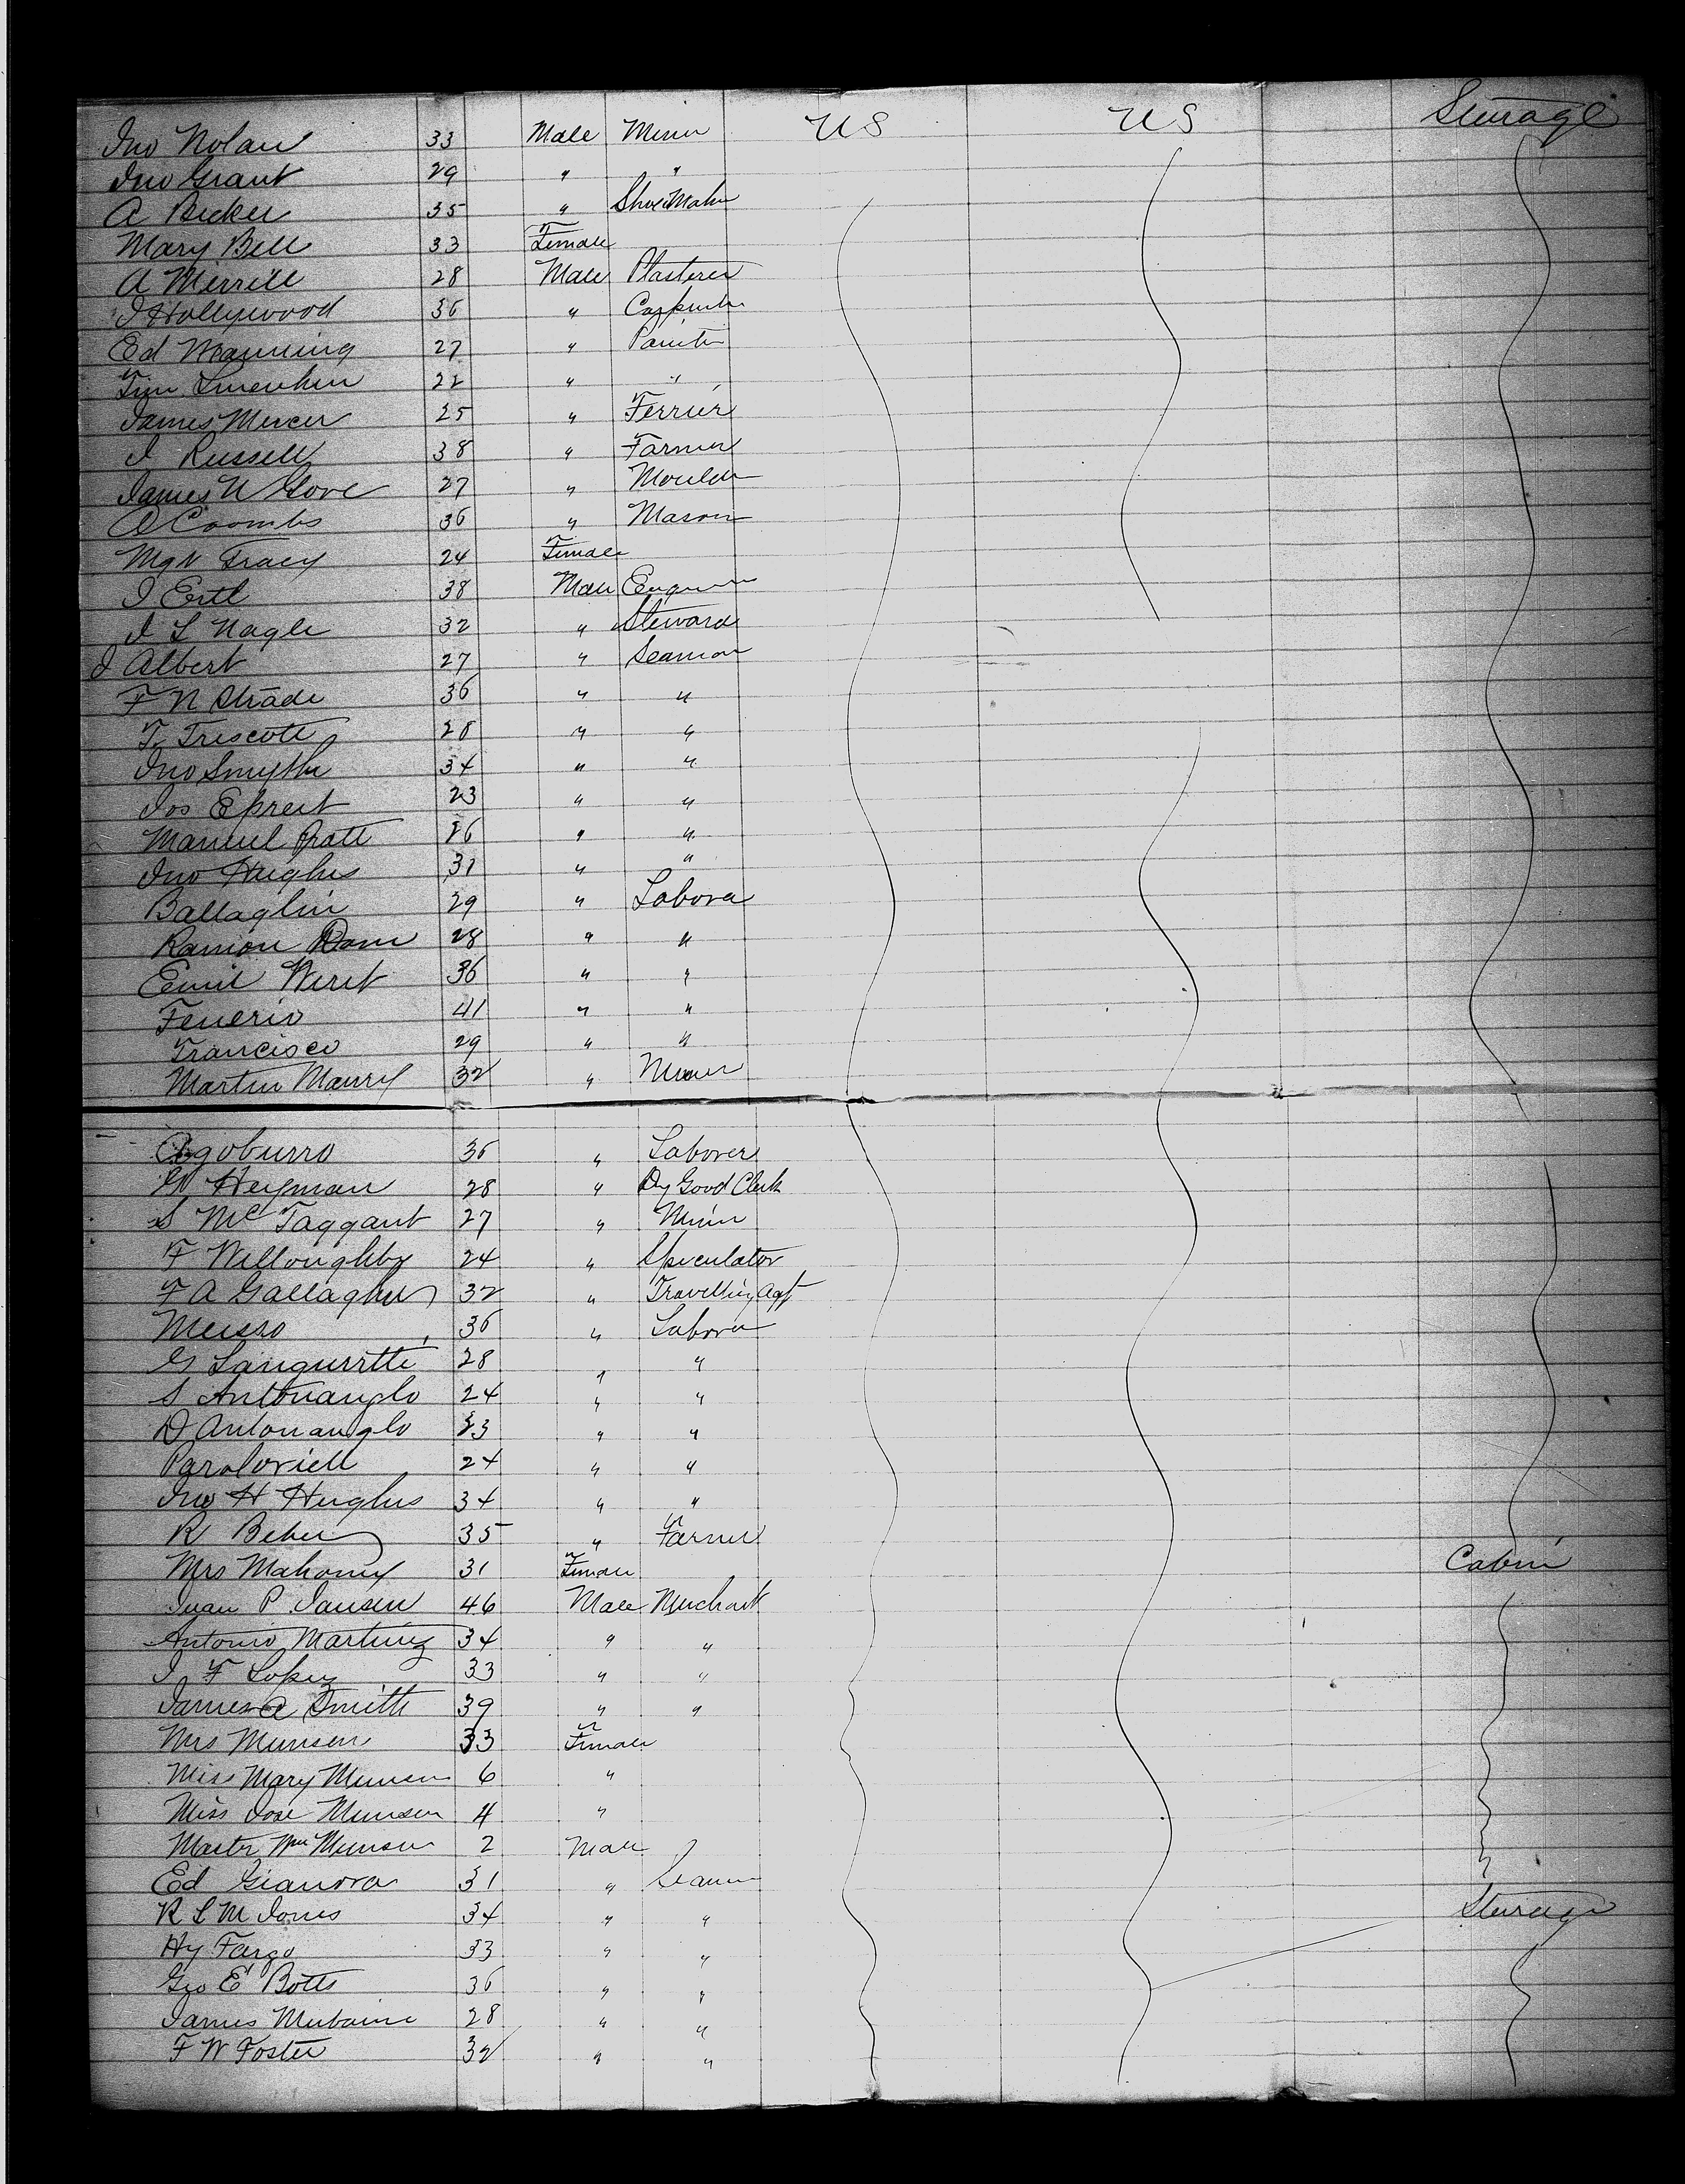 Jno Nolan 33 Male Miner US US Steerage
Jno Grant 29 " "
A Becker 35 " Shoe Maker
Mary Bell 33 Female
A Merrill 28 Male Plasterer
J Hollywood 36 " Carpenter
Ed Manning 27 " Painter
Tim 22 " "
James Mercer 25 " Ferrier
J Russell 38 " Farmer
James N Gove 27 " Moulder
A Coombs 36 " Mason
Mgt Tracy 24 Female
J Ertl 38 Male Engineer
J L Nagle 32 " Steward
J Albert 27 " Seaman
F N Strade 36 " "
T Triscott 28 " "
Jno Smythe 34 " "
Jos 23 " "
Manuel Pratt 26 " "
Jno Hughes 31 " "
Ballaglin 29 " Laborer
Ramon Dam 28 " "
Emil Weret 36 " "
Fenerio 41 " "
Francisco 29 " "
Martin Maury 32 " Miner
Agoburro 36 " Laborer
G Heyman 28 " Dry Good Clerk
S McTaggart 27 " Miner
F Willoughby 24 " Speculator
F A Gallagher 32 " Travelling Agt
Meisso 36 " Laborer
G 28 " "
S Antonanglo 24 " "
D Antonanglo 23 " "
24 " "
Jno H Hughes 34 " "
R Beker 35 " Farmer
Mrs Mahoney 31 Female Cabin
Juan P Jansen 46 Male Merchant
Antonio Martinez 34 " "
J F Lopez 33 " "
James A Smith 39 " "
Mrs Munsen 33 Female
Miss Mary Munsen 6 "
Miss Jose Munsen 4 "
Master Wm Munsen 2 Male
Ed Gianora 31 " Seaman
R L M Jones 34 " " Steerage
Hy Fargo 33 " "
Geo E Botts 36 " "
James 28 " "
F W Foster 32 " "